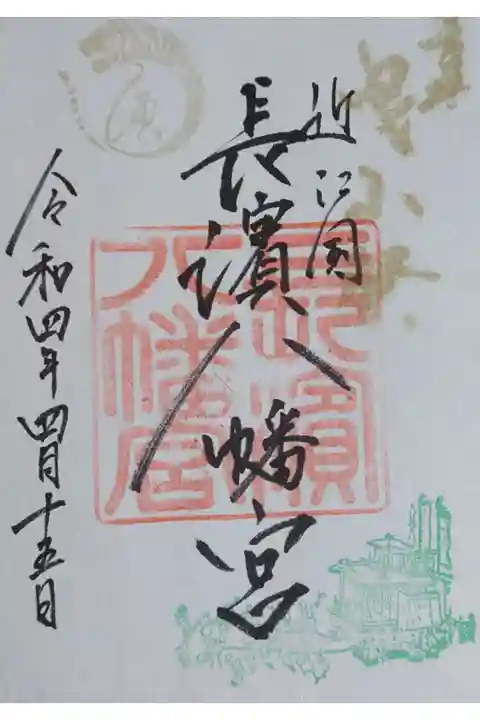 近江国
長濱八幡宮
長濱
八幡宮
令和四年四月十五日